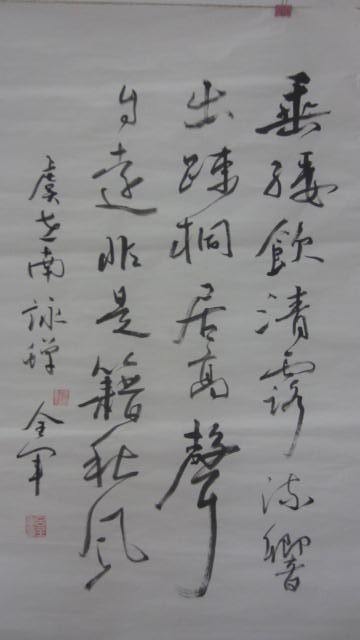 垂緌飲清露流響
出疎桐居高聲
自遠非是籍秋風
虞世南詠蟬 全軍